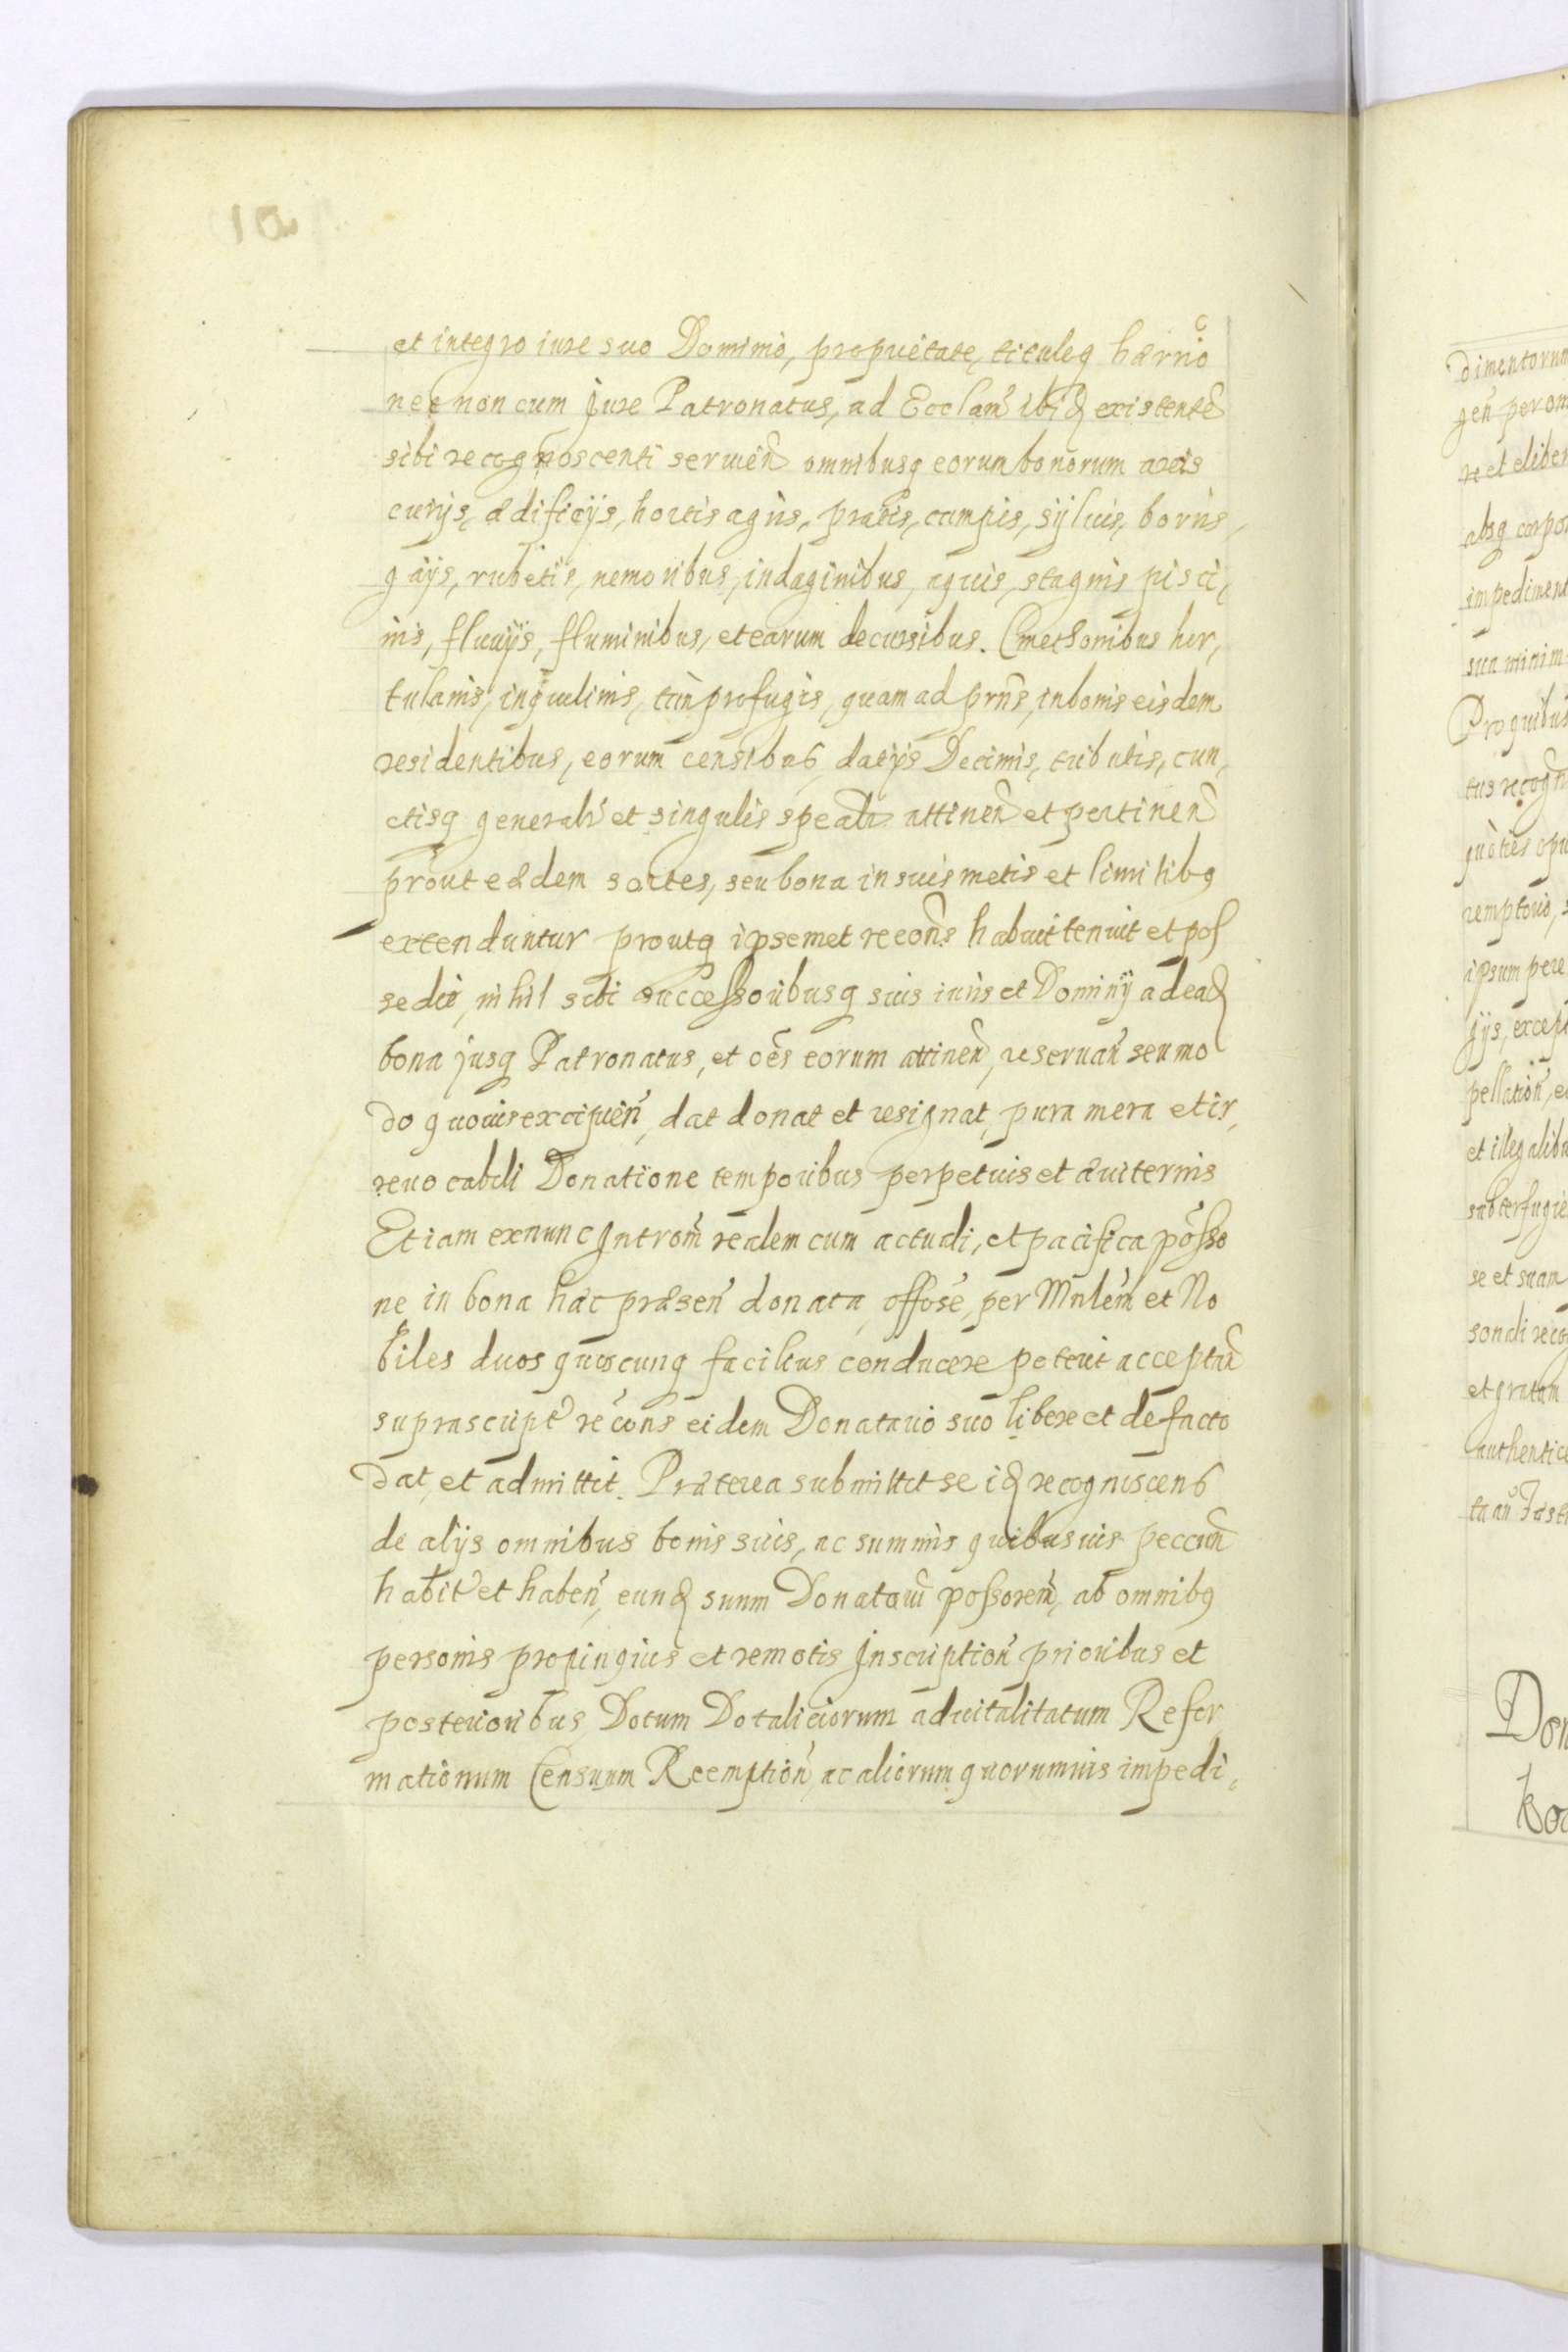 et integro iure suo Dominio, proprietate, tituloq hærrio
nec non cum Jure Patronatus, ad Ecclam ibid existente
sibi recognoscenti seruien omnibusq eorum bonorum areis
curijs, ædificijs, hortis agris, pratis, campis, sÿluis, borris,
gaijs, rubetis, nemoribus, indaginibus, aquis, stagnis pisci,
nis, fluuijs, fluminibus, et earum decursibus. Cmethonibus hor,
tulanis, inquilinis, tam profugis, quam ad prns, in bonis eisdem
residentibus, eorum censibus datijs Decimis, tributis, cun,
ctisq generalr et singulis spealr attinen et pertinen
prout eædem sortes, seu bona in suis metis et limitibq
extenduntur proutq ipsemet recons habuit tenuit et pos
sedit, nihil sibi successoribusq suis iuris et Dominÿ ad ead
bona jusq Patronatus, et oes eorum attinen, reseruan seu mo
do quouis excipien, dat donat et resignat, pura mera et ir,
reuocabili Donatione temporibus perpetuis et æuiternis
Etiam exnunc Introm realem cum actuali, et pacifica posso
ne in bona hac præsen donata, offose, per Mnlem et No
biles duos quoscunq facilius conducere poterit acceptan
suprascript recons eidem Donatario suo libere et de facto
dat, et admittit. Præterea submittit se id recognoscens
de alijs omnibus bonis suis, ac summis quibusuis peccun
habit et haben, eund suum Donatarium possorem, ab omnibq
personis propinquis et remotis Inscription prioribus et
posterioribus Dotum Dotaliciorum aduitalitatum Refor
mationum Censuum Reemption, ac aliorum quorumuis impedi,
dimentorum
gen per om
re et eliber
absq corpor
impediment
sua minim
Pro quibus
tus recogn
quoties opu
remptorio, s
ipsum pere
jÿs, except
pellation, e
et illegalibu
subterfugie
se et suam
sondi reco
et gratam
authentice
Don